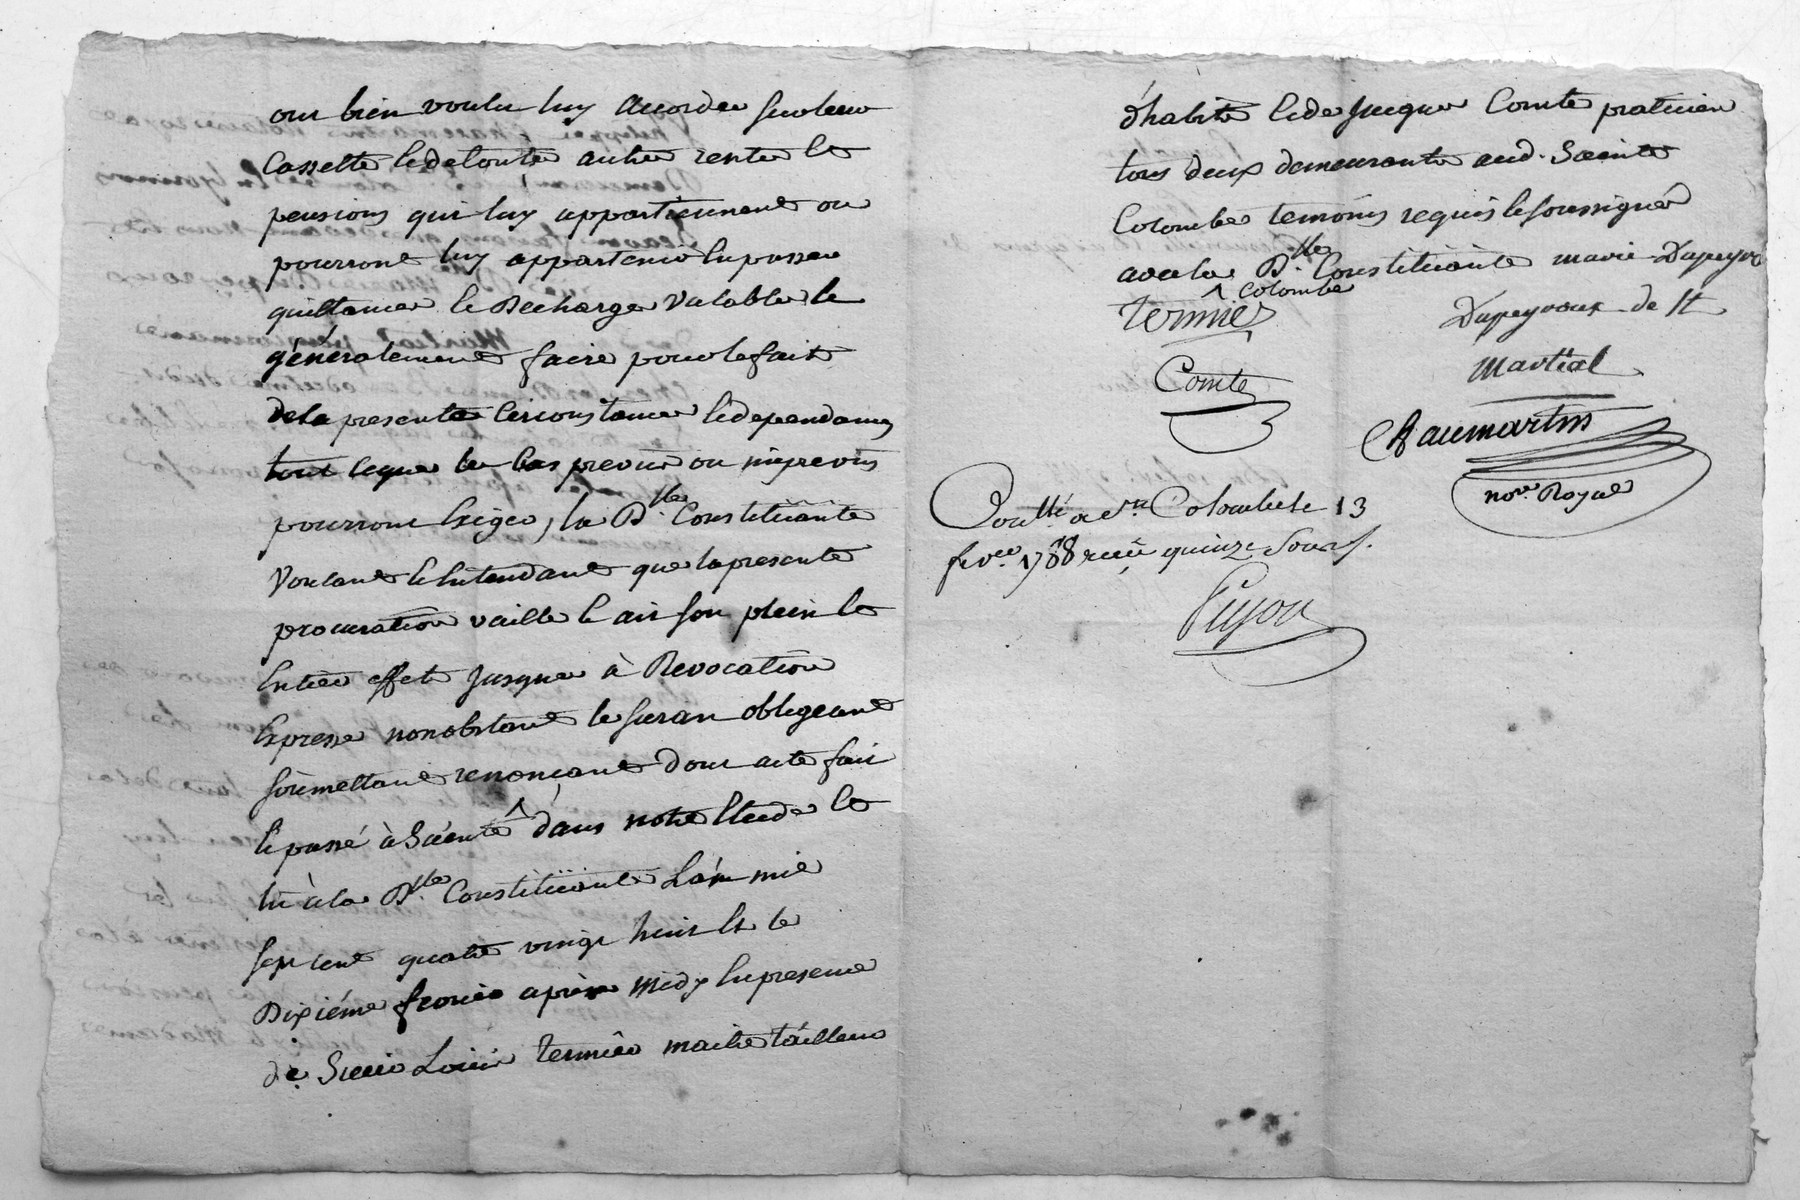 ont bien voulu luy accorder sur leur
Cassette et de toute autre rente et
pensions qui luy appartiennent ou
pourront luy appartenir en passer
quittance et Decharge Valable et
généralement faire pour le fait
de la presente Circonstance et dependances
tout ce que le Cas prevus ou imprevus
pourront Exiger, la Dlle Constituante
Voulant et Entendant que la presente
procuration vaille et ait son plein et
Entier effet Jusque à Revocation
Expresse nonobstant le suran obligeant
soumettant renonçant dont acte fait
et passé à Sainte ^ dans notre Etude et
lu à la Dlle Constituante L'an mil
sept cent quatre vingt huit et le
Dixiéme fevrier après Midy En presence
de Sieur Louis Termier maitre tailleur
d'habits et de Jacque Comte praticien
tous deux demeurants aud. Sainte
Colombe temoins requis et soussignés
avec la Dlle Constituante marie Dupeyroux
^ Colombe
Termier
Dupeyroux de St
Martial
Comte
Chaumartin
nore. Royal
Controllé a Ste Colombe le 13
fevrer. 1788 reçu quinze Sous.
Pujon